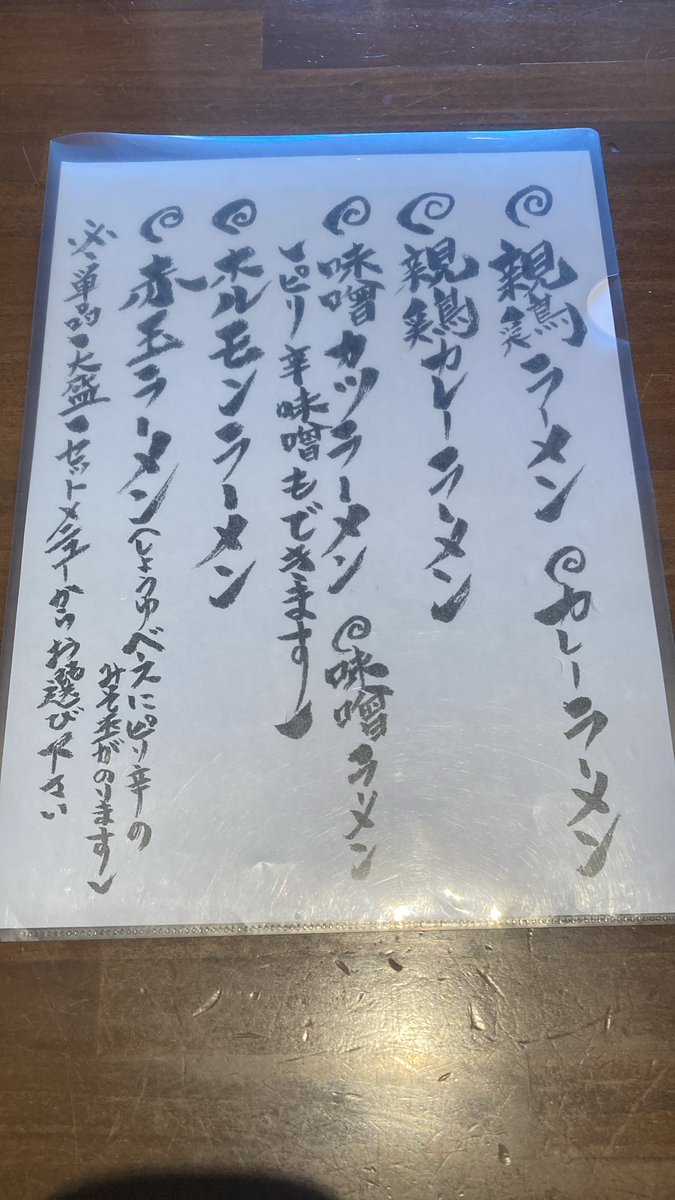 親鶏ラーメン
カレーラーメン
親鶏カレーラーメン
味噌カツラーメン
味噌ラーメン
(ピリ辛味噌もできます)
ホルモンラーメン
赤玉ラーメン(しょうゆベースにピリ辛の
みそ玉がのります)
必ず単品・大盛・セットメニューからお選び下さい